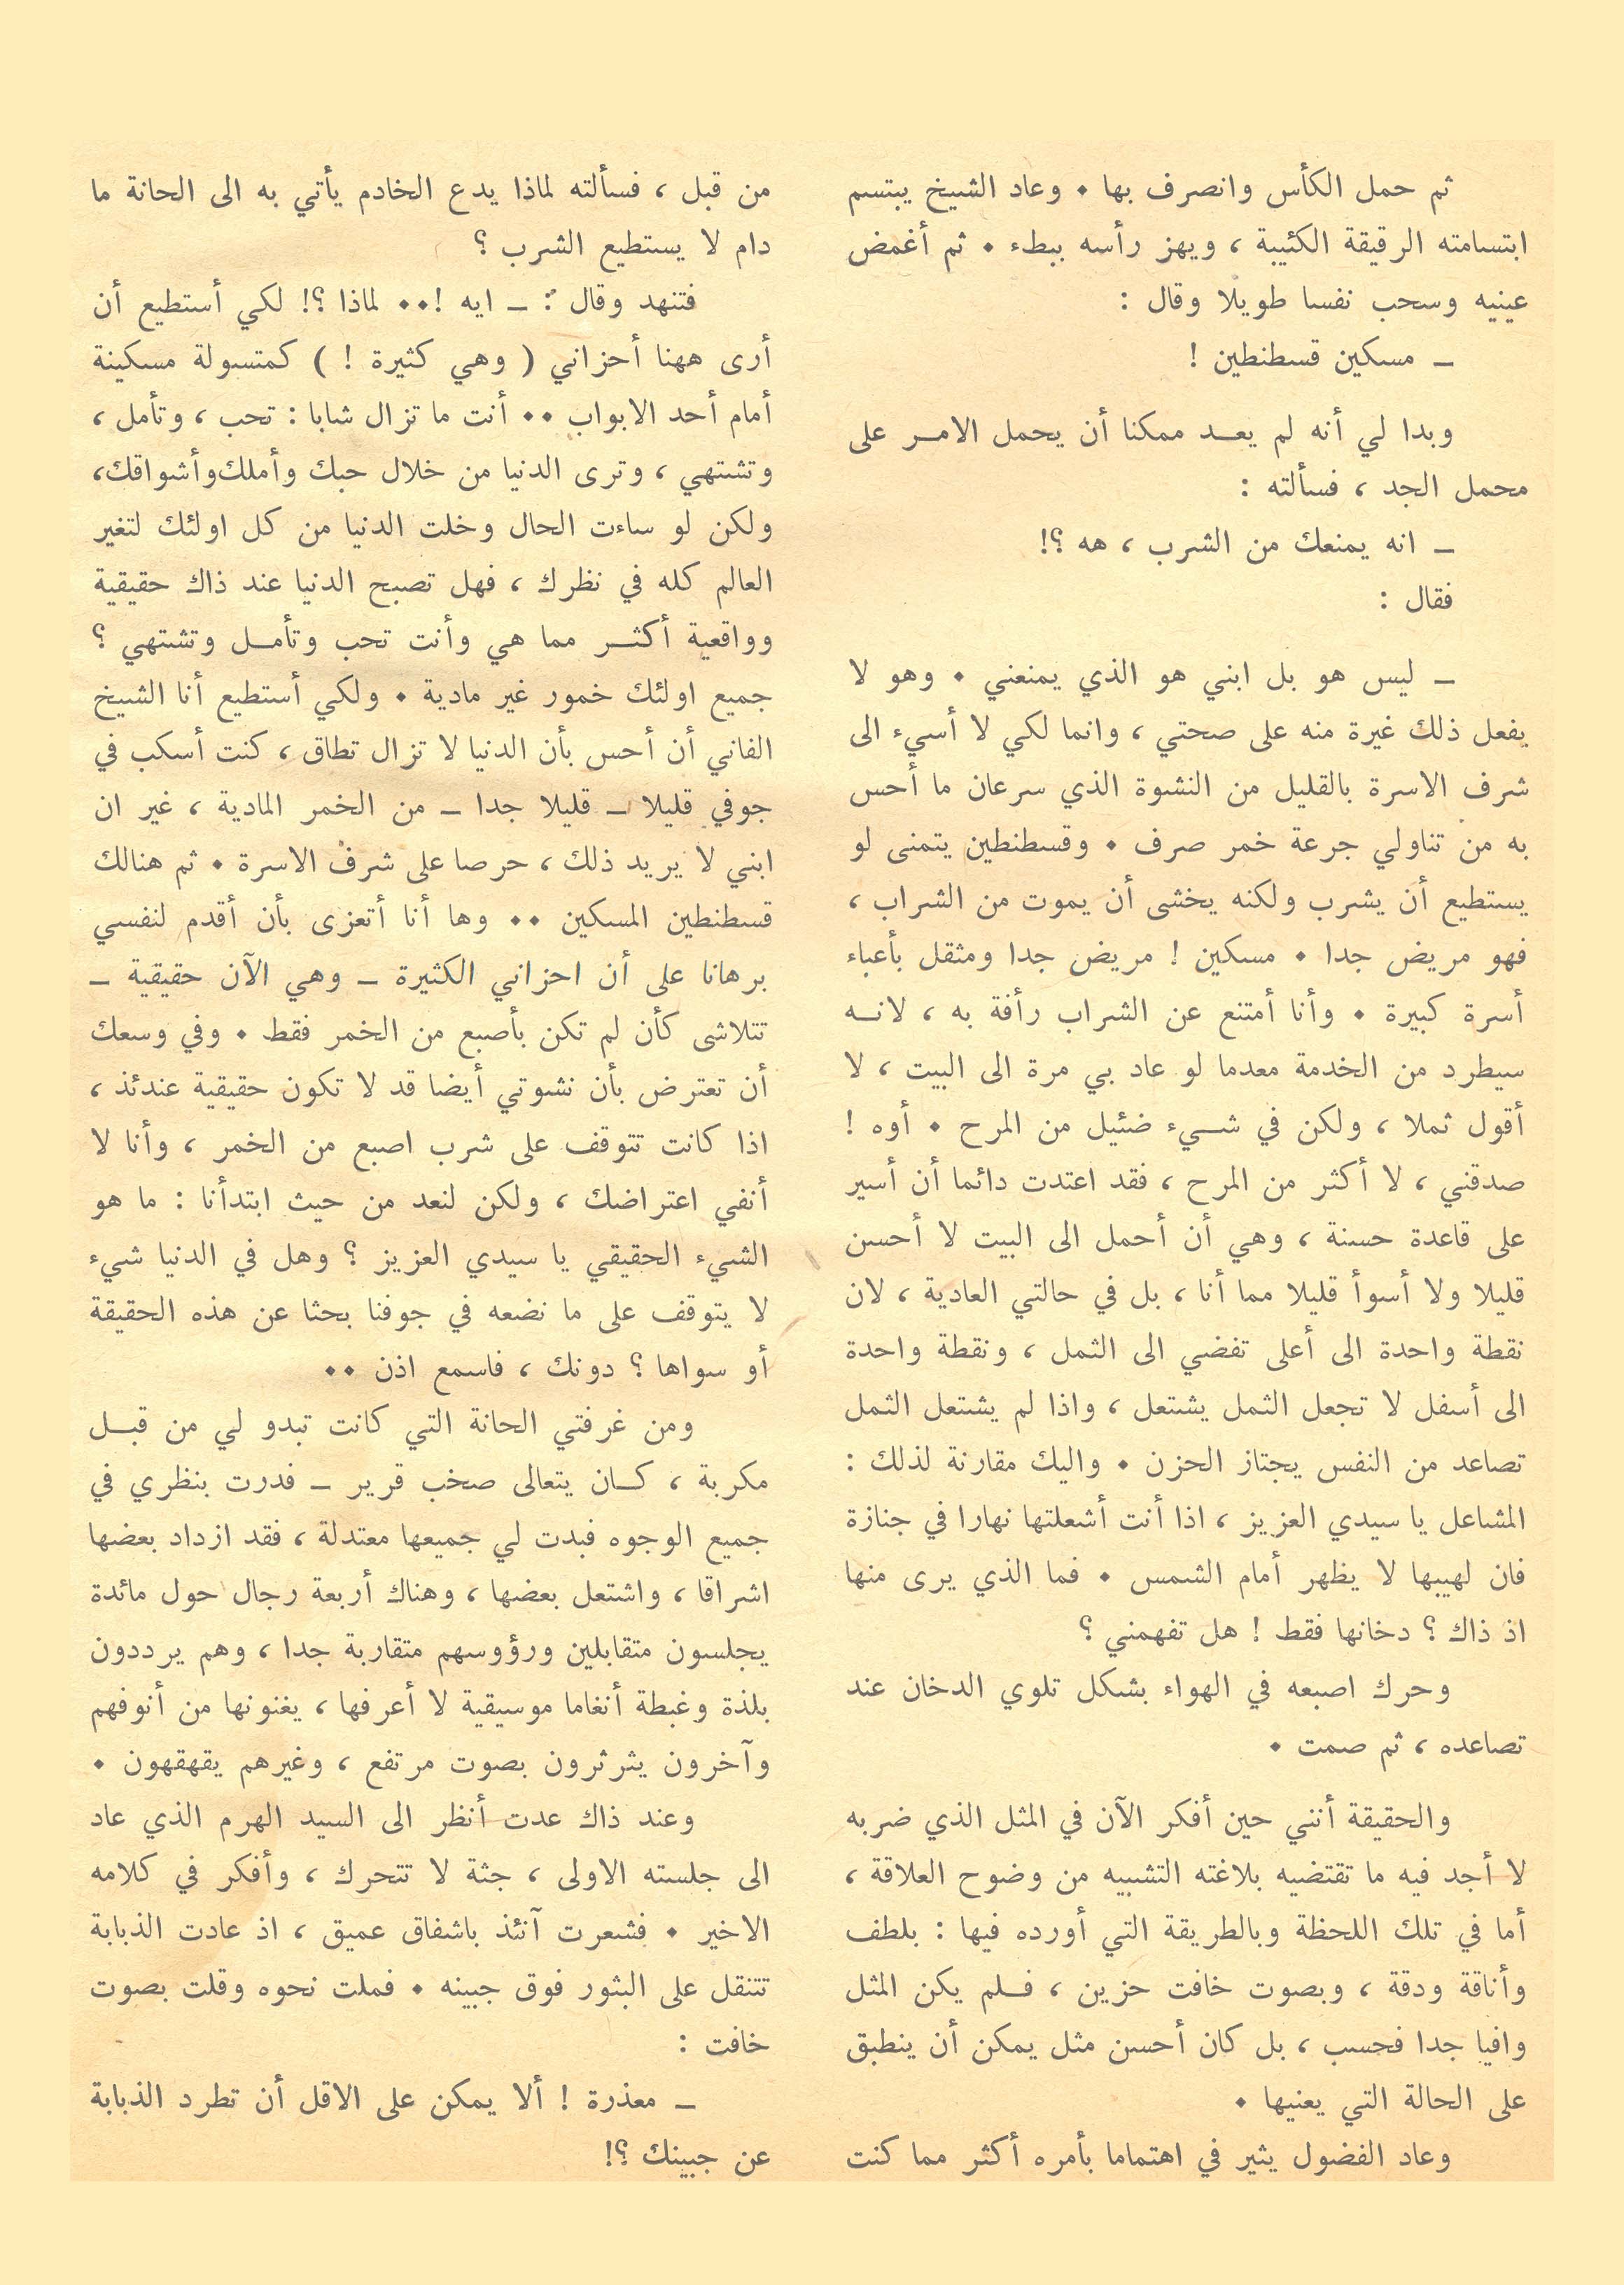 ثم حمل الكأس وانصرف بها ٠ وعاد الشيخ يبتسم
ابتسامته الرقيقة الكئيبة ، ويهز رأسه ببطء ٠ ثم أغمض
عينيه وسحب نفسا طويلا وقال :
ــ مسكين قسطنطين !
وبدا لي أنه لم يعــد ممكنا أن يحمل الامــر على
محمل الجد ، فسألته :
ــ انه يمنعك من الشرب ، هه ؟!
فقال :
ــ ليس هو بل ابني هو الذي يمنعني ٠ وهو لا
يفعل ذلك غيرة منه على صحتي ، وانما لكي لا أسيء الى
شرف الاسرة بالقليل من النشوة الذي سرعان ما أحس
به من تناولي جرعة خمر صرف ٠ وقسطنطين يتمنى لو
يستطيع أن يشرب ولكنه يخشى أن يموت من الشراب ،
فهو مريض جدا ٠ مسكين ! مريض جدا ومثقل بأعباء
أسرة كبيرة ٠ وأنا أمتنع عن الشراب رأفة به ، لانــه
سيطرد من الخدمة معدما لو عاد بي مرة الى البيت ، لا
أقول ثملا ، ولكن في شــيء ضئيل من المرح ٠ أوه !
صدقني ، لا أكثر من المرح ، فقد اعتدت دائما أن أسير
على قاعدة حسنة ، وهي أن أحمل الى البيت لا أحسن
قليلا ولا أسوأ قليلا مما أنا ، بل في حالتي العادية ، لان
نقطة واحدة الى أعلى تفضي الى الثمل ، ونقطة واحدة
الى أسفل لا تجعل الثمل يشتعل ، واذا لم يشتعل الثمل
تصاعد من النفس يجتاز الحزن ٠ واليك مقارنة لذلك :
المشاعل يا سيدي العزيز ، اذا أنت أشعلتها نهارا في جنازة
فان لهيبها لا يظهر أمام الشمس ٠ فما الذي يرى منها
اذ ذاك ؟ دخانها فقط ! هل تفهمني ؟
وحرك اصبعه في الهواء بشكل تلوي الدخان عند
تصاعده ، ثم صمت ٠
والحقيقة أنني حين أفكر الآن في المثل الذي ضربه
لا أجد فيه ما تقتضيه بلاغته التشبيه من وضوح العلاقة ،
أما في تلك اللحظة وبالطريقة التي أورده فيها : بلطف
وأناقة ودقة ، وبصوت خافت حزين ، فــلم يكن المثل
وافيا جدا فحسب ، بل كان أحسن مثل يمكن أن ينطبق
على الحالة التي يعنيها ٠
وعاد الفضول يثير في اهتماما بأمره أكثر مما كنت
من قبل ، فسألته لماذا يدع الخادم يأتي به الى الحانة ما
دام لا يستطيع الشرب ؟
فتنهد وقال : ــ ايه !٠٠ لماذا ؟! لكي أستطيع أن
أرى ههنا أحزاني ( وهي كثيرة ! ) كمتسولة مسكينة
أمام أحد الابواب ٠٠ أنت ما تزال شابا : تحب ، وتأمل ،
وتشتهي ، وترى الدنيا من خلال حبك وأملك وأشواقك،
ولكن لو ساءت الحال وخلت الدنيا من كل اولئك لتغير
العالم كله في نظرك ، فهل تصبح الدنيا عند ذاك حقيقية
وواقعية أكثــر مما هي وأنت تحب وتأمــل وتشتهي ؟
جميع اولئك خمور غير مادية ٠ ولكي أستطيع أنا الشيخ
الفاني أن أحس بأن الدنيا لا تزال تطاق ، كنت أسكب في
جوفي قليلا ــ قليلا جدا ــ من الخمر المادية ، غير ان
ابني لا يريد ذلك ، حرصا على شرف الاسرة ٠ ثم هنالك
قسطنطين المسكين ٠٠ وها أنا أتعزى بأن أقدم لنفسي
برهانا على أن احزاني الكثيرة ــ وهي الآن حقيقية ــ
تتلاشى كأن لم تكن بأصبع من الخمر فقط ٠ وفي وسعك
أن تعترض بأن نشوتي أيضا قد لا تكون حقيقية عندئذ ،
اذا كانت تتوقف على شرب اصبع من الخمر ، وأنا لا
أنفي اعتراضك ، ولكن لنعد من حيث ابتدأنا : ما هو
الشيء الحقيقي يا سيدي العزيز ؟ وهل في الدنيا شيء
لا يتوقف على ما نضعه في جوفنا بحثا عن هذه الحقيقة
أو سواها ؟ دونك ، فاسمع اذن ٠٠
ومن غرفتي الحانة التي كانت تبدو لي من قبــل
مكربة ، كــان يتعالى صخب قرير ــ فدرت بنظري في
جميع الوجوه فبدت لي جميعها معتدلة ، فقد ازداد بعضها
اشراقا ، واشتعل بعضها ، وهناك أربعة رجال حول مائدة
يجلسون متقابلين ورؤوسهم متقاربة جدا ، وهم يرددون
بلذة وغبطة أنغاما موسيقية لا أعرفها ، يغنونها من أنوفهم
وآخرون يثرثرون بصوت مرتفع ، وغيرهم يقهقهون ٠
وعند ذاك عدت أنظر الى السيد الهرم الذي عاد
الى جلسته الاولى ، جثة لا تتحرك ، وأفكر في كلامه
الاخير ٠ فشعرت آنئذ باشفاق عميق ، اذ عادت الذبابة
تتنقل على البثور فوق جبينه ٠ فملت نحوه وقلت بصوت
خافت :
ــ معذرة ! ألا يمكن على الاقل أن تطرد الذبابة
عن جبينك ؟!